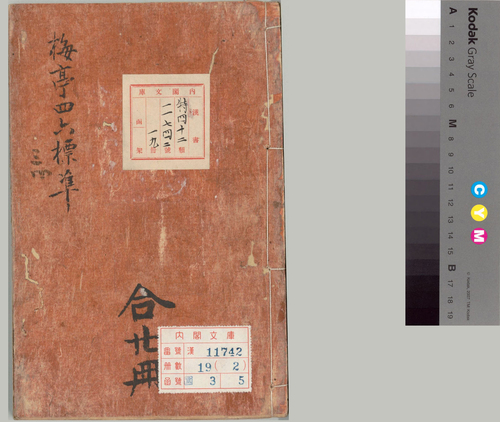 梅亭四六標準
合廿冊
內閣文庫
漢
特四十二
一一七四二
一九
內閣文庫
番號 漢 11742
冊數 19 ( 2 )
函號 3 5
Kodak Gray Scale
A 1 2 3 4 5 6 M 8 9 10 11 12 13 14 15 B 17 18 19
C Y M